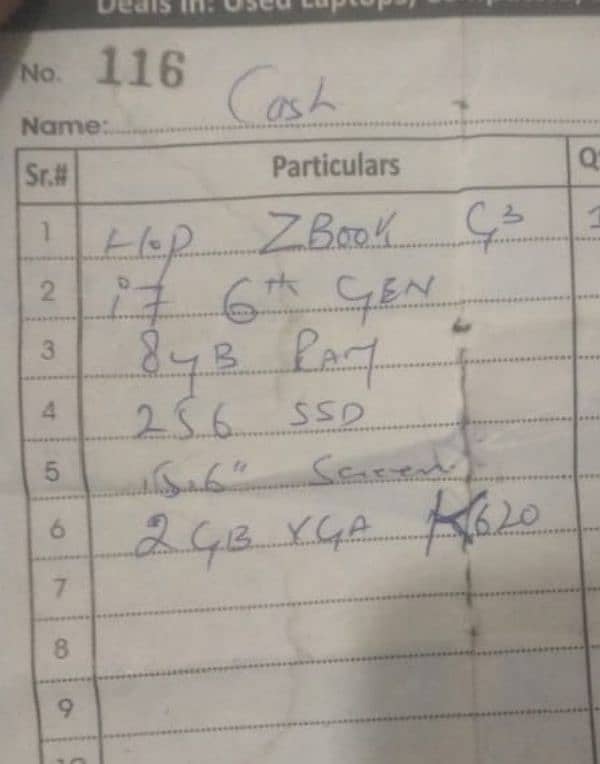 Deals in: Used Laptops,
No. 116
Name: Cash
Sr.# Particulars
1 Hp ZBook G3 1
2 i7 6th GEN
3 8GB RAM
4 256 SSD
5 15.6" Screen
6 2GB VGA K620
7
8
9
10